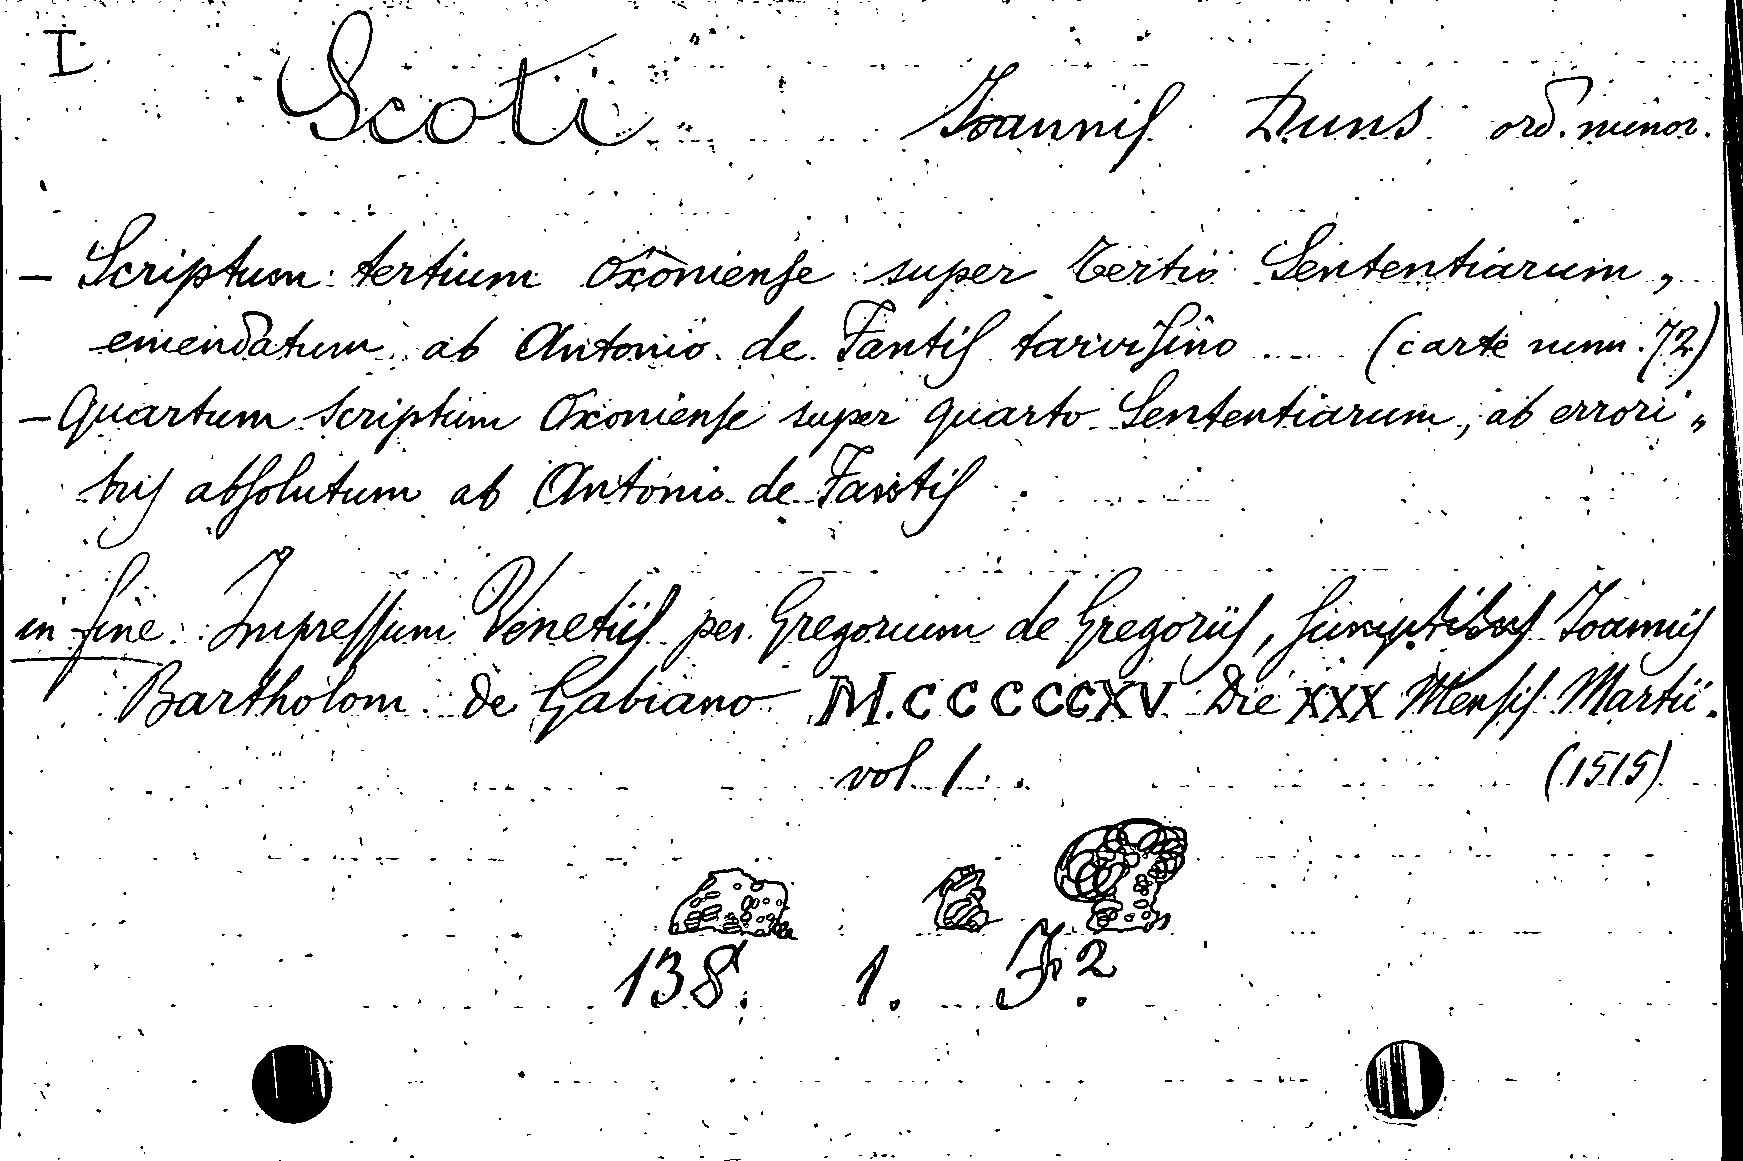 I
Scoti Ioannis Duns ord. minor.
- Scriptum tertium Oxoniense super tertio Sententiarum,
emendatum ab Antonio de Fantis tarvisino (carte num. 72)
- Quartum scriptum Oxoniense super quarto Sententiarum, ab errori„
bus absolutum ab Antonio de Fantis
in fine. Impressum Venetiis per Gregorium de Gregoriis, sumptibus Ioannis
Bartholom. de Gabiano M.CCCCCXV Die XXX Mensis Martii.
vol. 1. (1515)
138. 1. F. 2